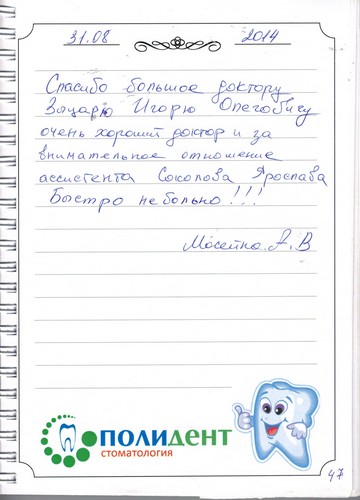 31.08 2014
Спасибо большое доктору
Зяцарю Игорю Олеговичу
очень хороший доктор и за
внимательное отношение
ассистента Соколова Ярослава
Быстро не больно!!!
Мосейко А.В
ПОЛИДЕНТ
СТОМАТОЛОГИЯ
47